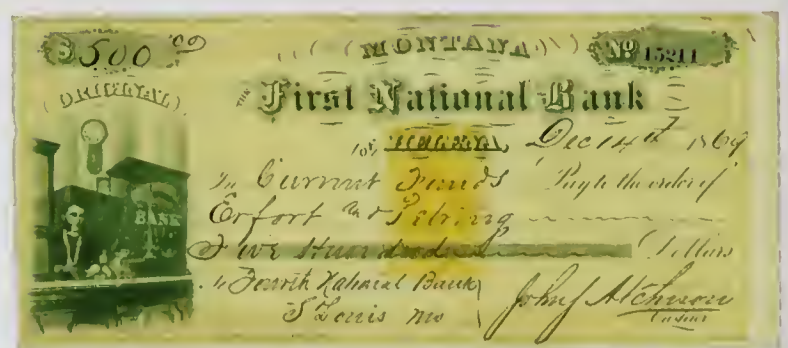 $500 00 (MONTANA) No 15211
(ORIGINAL)
THE First National Bank
of HELENA, Dec 14th 1869
In Current Funds Pay to the order of
Erfort and
Five Hundred Dollars
BANK
To Fourth National Bank
St Louis Mo
John Atchison
Cashier